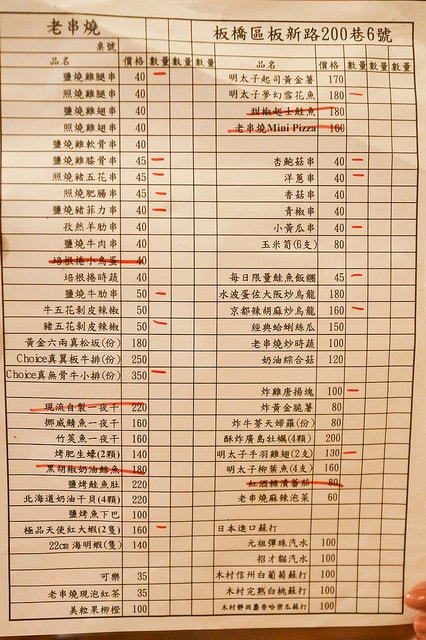 老串燒
板橋區板新路200巷6號
桌號
品名 價格 數量 數量 數量
鹽燒雞腿串 40
照燒雞腿串 40
鹽燒雞翅串 40
照燒雞翅串 40
鹽燒雞軟骨串 40
鹽燒雞膝骨串 45
照燒豬五花串 45
照燒肥腸串 45
鹽燒豬菲力串 40
孜然羊肋串 40
鹽燒牛肉串 40
培根捲小鳥蛋 40
培根捲時蔬 40
鹽燒牛肋串 50
牛五花剝皮辣椒 50
豬五花剝皮辣椒 50
黃金六兩真松坂(份) 180
Choice真翼板牛排(份) 250
Choice真無骨牛小排(份) 350
現流自製一夜干 220
挪威鯖魚一夜干 160
竹筴魚一夜干 160
烤肥生蠔(2顆) 140
黑胡椒奶油鱈魚 180
鹽烤鮭魚肚 220
北海道奶油干貝(4顆) 220
鹽烤魚下巴 100
極品天使紅大蝦(2隻) 160
22cm海明蝦(隻) 140
可樂 35
老串燒現泡紅茶 35
美粒果柳橙 100
品名 價格 數量 數量 數量
明太子起司黃金薯 170
明太子夢幻雪花魚 180
甜椒起士鮭魚 180
老串燒Mini Pizza 160
杏鮑菇串 40
洋蔥串 40
香菇串 40
青椒串 40
小黃瓜串 40
玉米筍(6支) 80
每日限量鮭魚飯糰 45
水波蛋佐大阪炒烏龍 180
京都辣胡麻炒烏龍 160
經典蛤蜊絲瓜 150
老串燒炒時蔬 100
奶油綜合菇 120
炸雞唐揚塊 100
炸黃金脆薯 80
炸牛蒡天婦羅(份) 80
酥炸廣島牡蠣(4顆) 200
明太子手羽雞翅(2支) 130
明太子柳葉魚(4支) 160
紅酒糖漬番茄 80
老串燒麻辣泡菜 60
日本進口蘇打
元祖彈珠汽水 100
招才貓汽水 100
木村信州白葡萄蘇打 100
木村完熟白桃蘇打 100
木村靜岡麝香哈密瓜蘇打 100